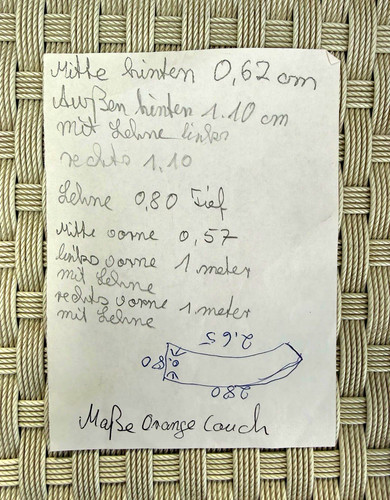 Mitte hinten 0,62 cm
Außen hinten 1.10 cm
mit Lehne links
rechts 1,10
Lehne 0,80 Tief
Mitte vorne 0,57
links vorne 1 meter
mit Lehne
rechts vorne 1 meter
mit Lehne
2,65
80
280
Maße Orange Couch